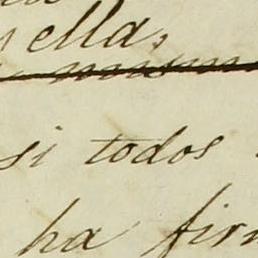 ella,
si todos
ha fir